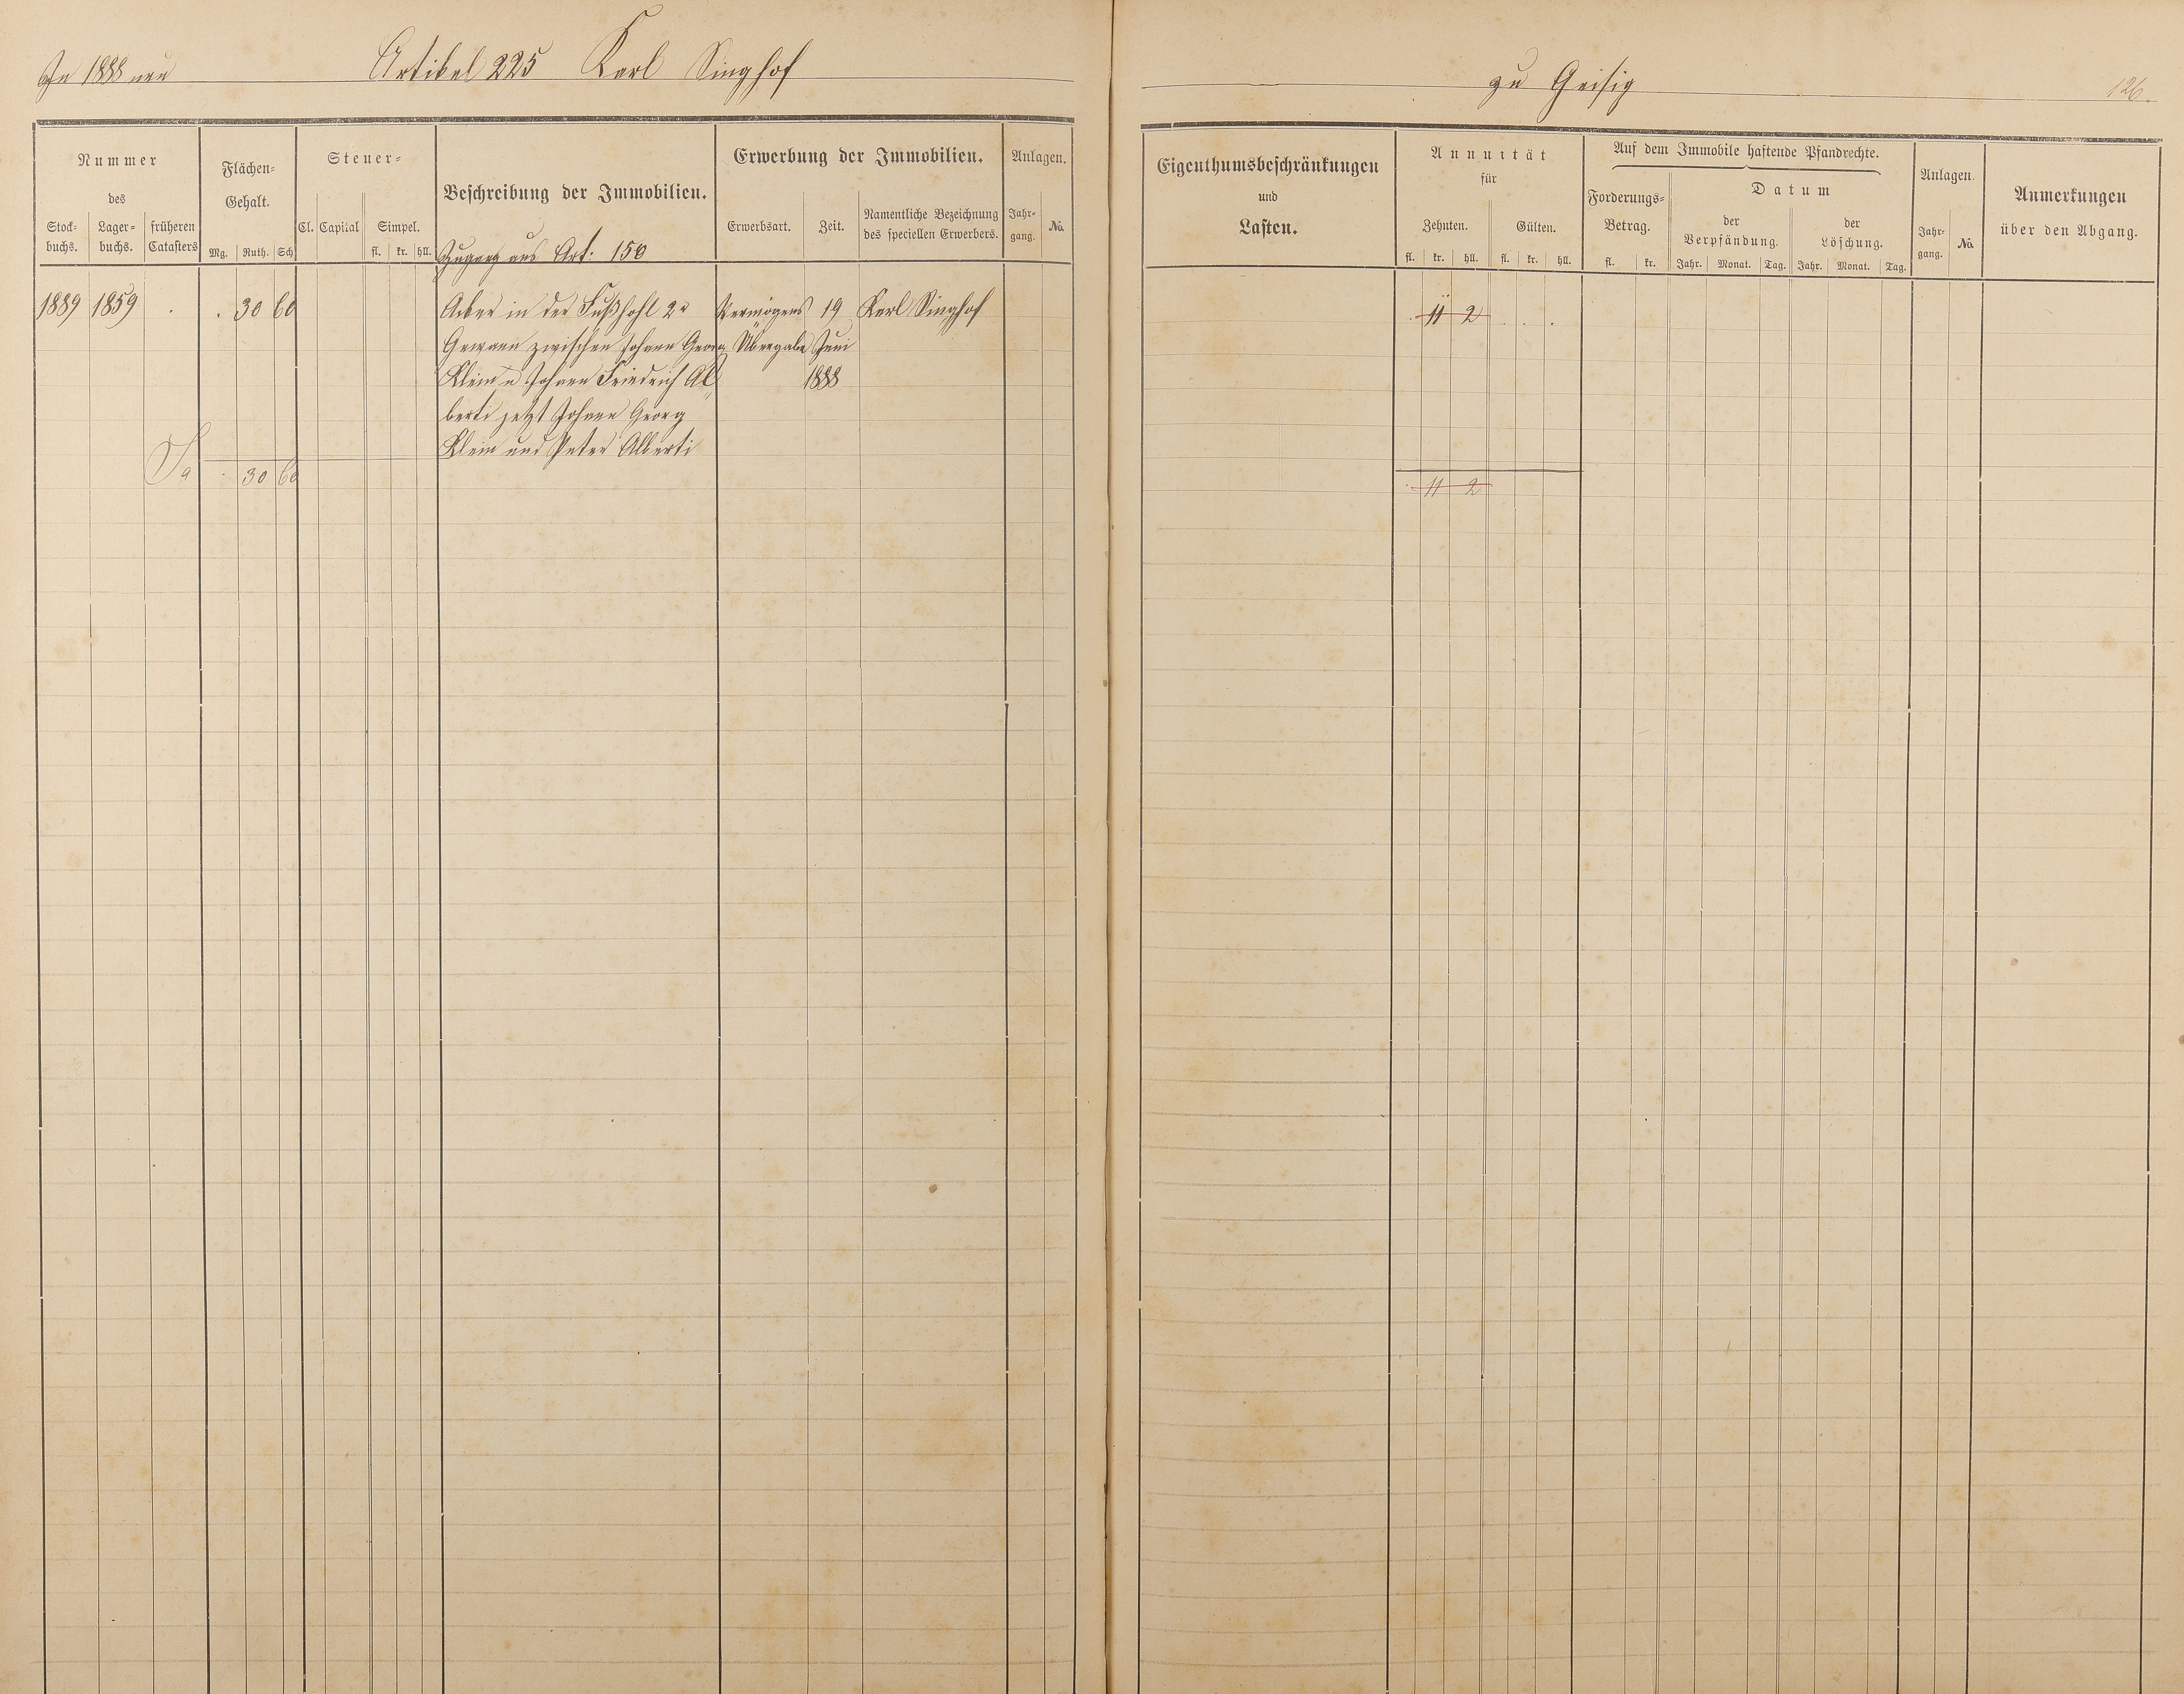 In 1888 neu
Artikel 225 Karl Singhof
Nummer
des
Stock-
buchs.
Lager-
buchs.
früheren
Catasters
Flächen-
Gehalt.
Mg. Ruth. Sch.
Steuer-
Cl. Capital Simpel.
fl. kr. hll.
Beschreibung der Immobilien.
Zugang aus Art: 150
Erwerbung der Immobilien.
Erwerbsart. Zeit. Namentliche Bezeichnung
des speciellen Erwerbers.
Anlagen.
Jahr-
gang. No.
1889 1859 . . 30 60 Acker in der Fußhohl 2r Vermögens 19 Karl Singhof
Gewann zwischen Johann Georg Übergabe Juni
Klein u Johann Friedrich Al 1888
berti jetzt Johann Georg
Klein und Peter Alberti
Sa . 30 60
zu Geisig
126.
Eigenthumsbeschränkungen
und
Lasten.
Annuität
für
Zehnten. Gülten.
fl. kr. hll. fl. kr. hll.
Auf dem Immobile haftende Pfandrechte.
Forderungs-
Betrag.
fl. kr.
Datum
der
Verpfändung.
Jahr. Monat. Tag.
der
Löschung.
Jahr. Monat. Tag.
Anlagen.
Jahr-
gang. No.
Anmerkungen
über den Abgang.
. 11 2 . . .
. 11 2